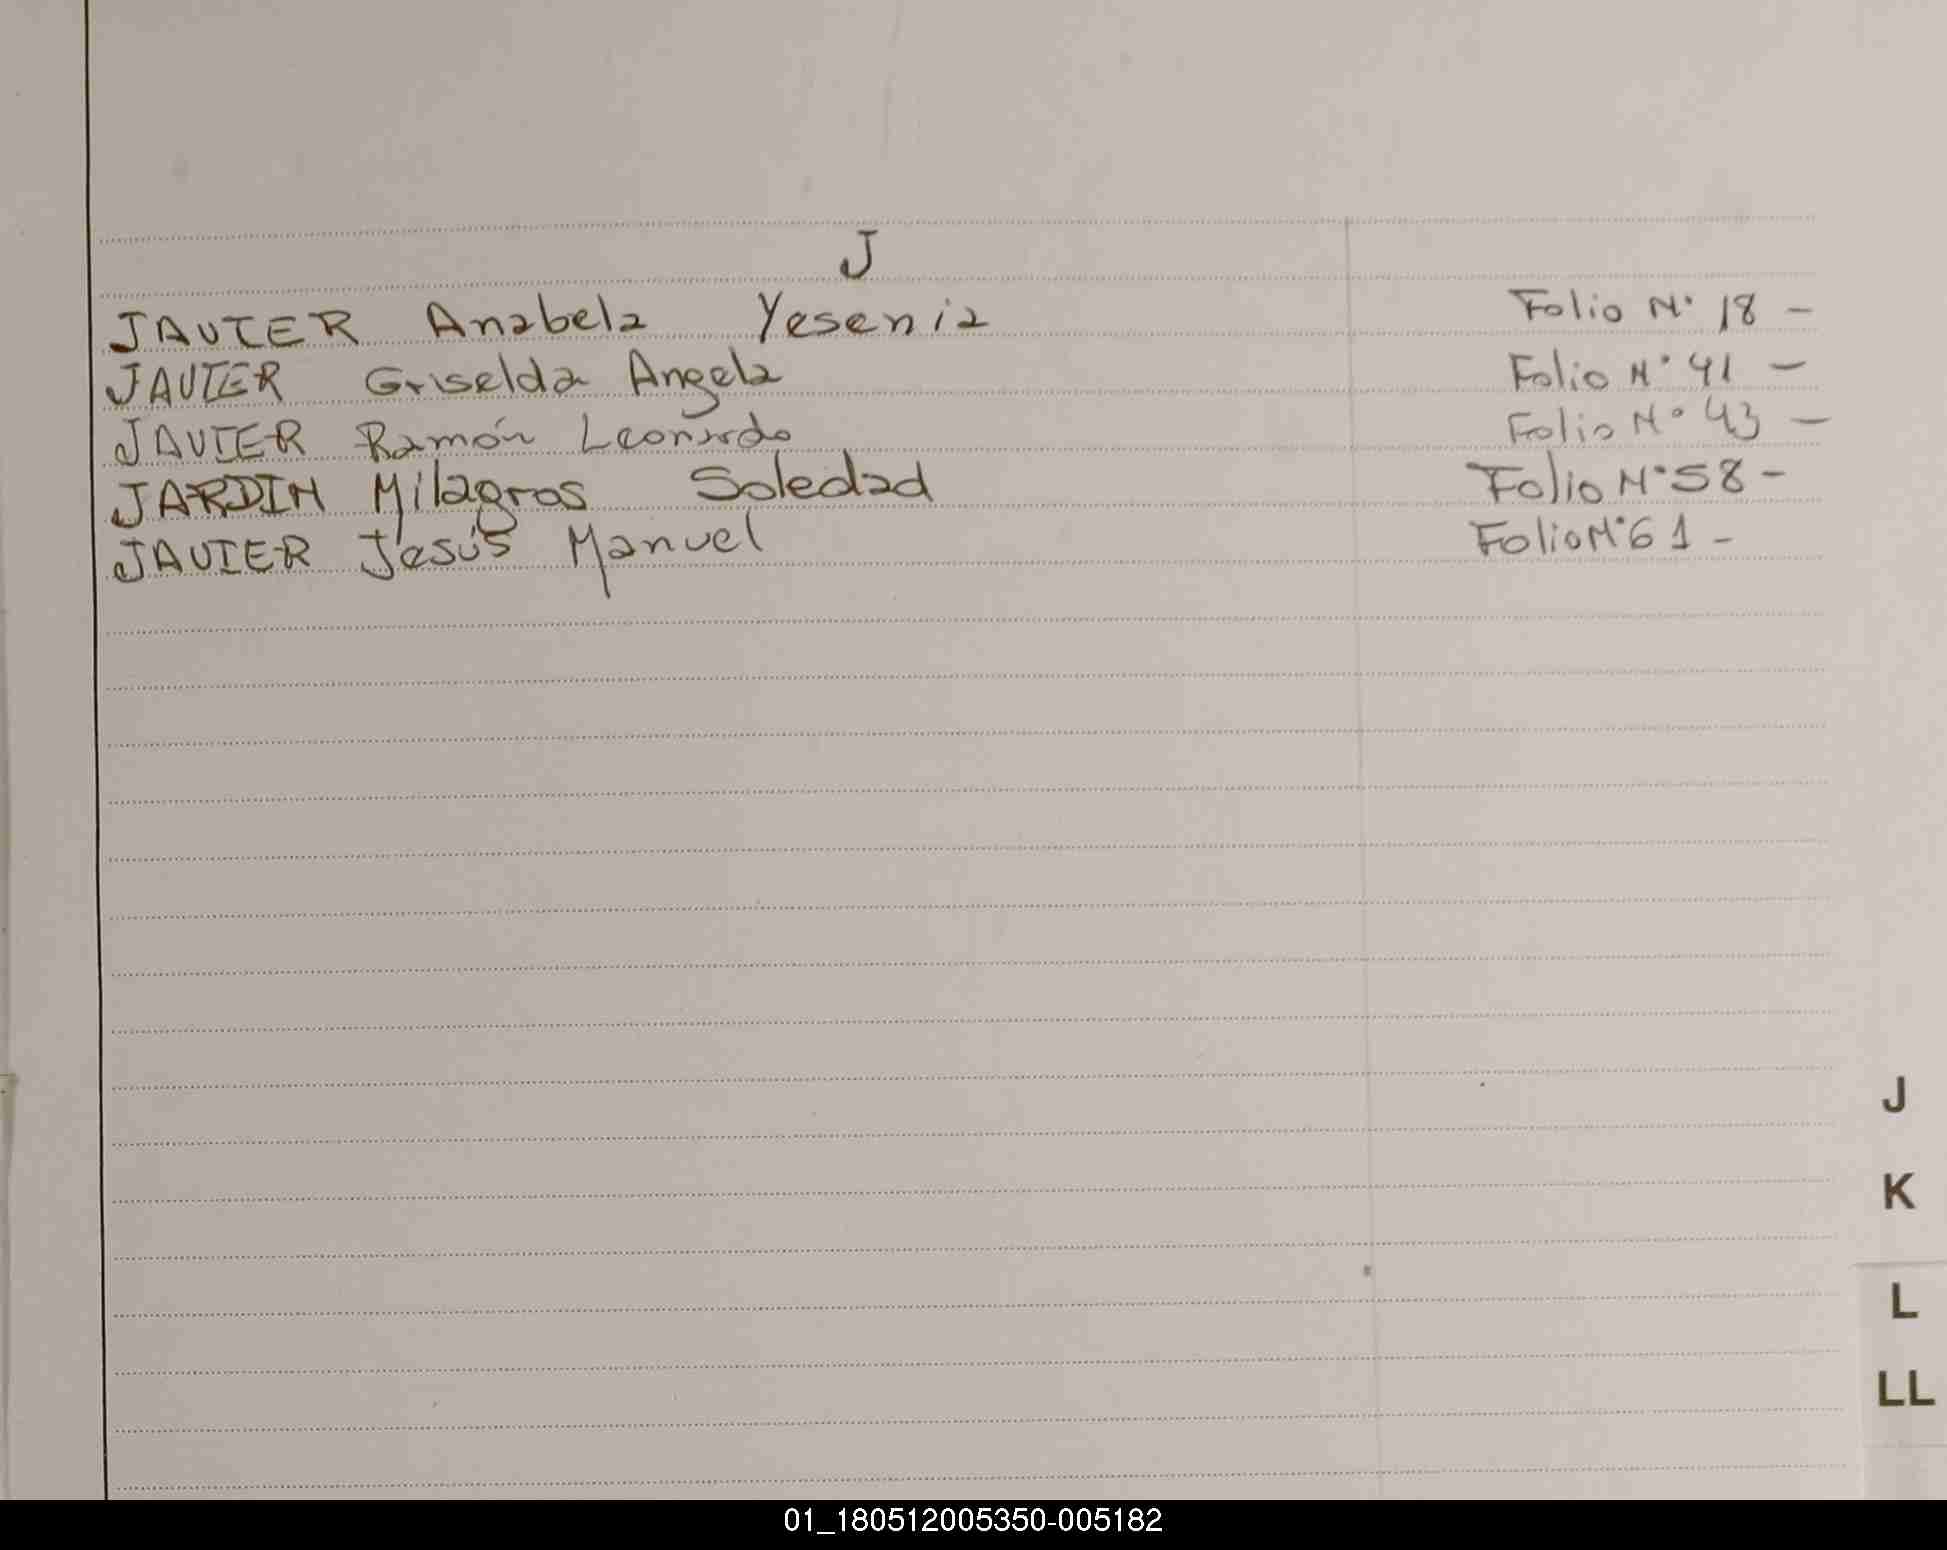 J
JAVIER Anabela Yesenia Folio N° 18 -
JAVIER Griselda Angela Folio N° 41 -
JAVIER Ramón Leonardo Folio N° 43 -
JARDIN Milagros Soledad Folio N° 58 -
JAVIER Jesús Manuel Folio N° 61 -
J
K
L
LL
01_180512005350-005182